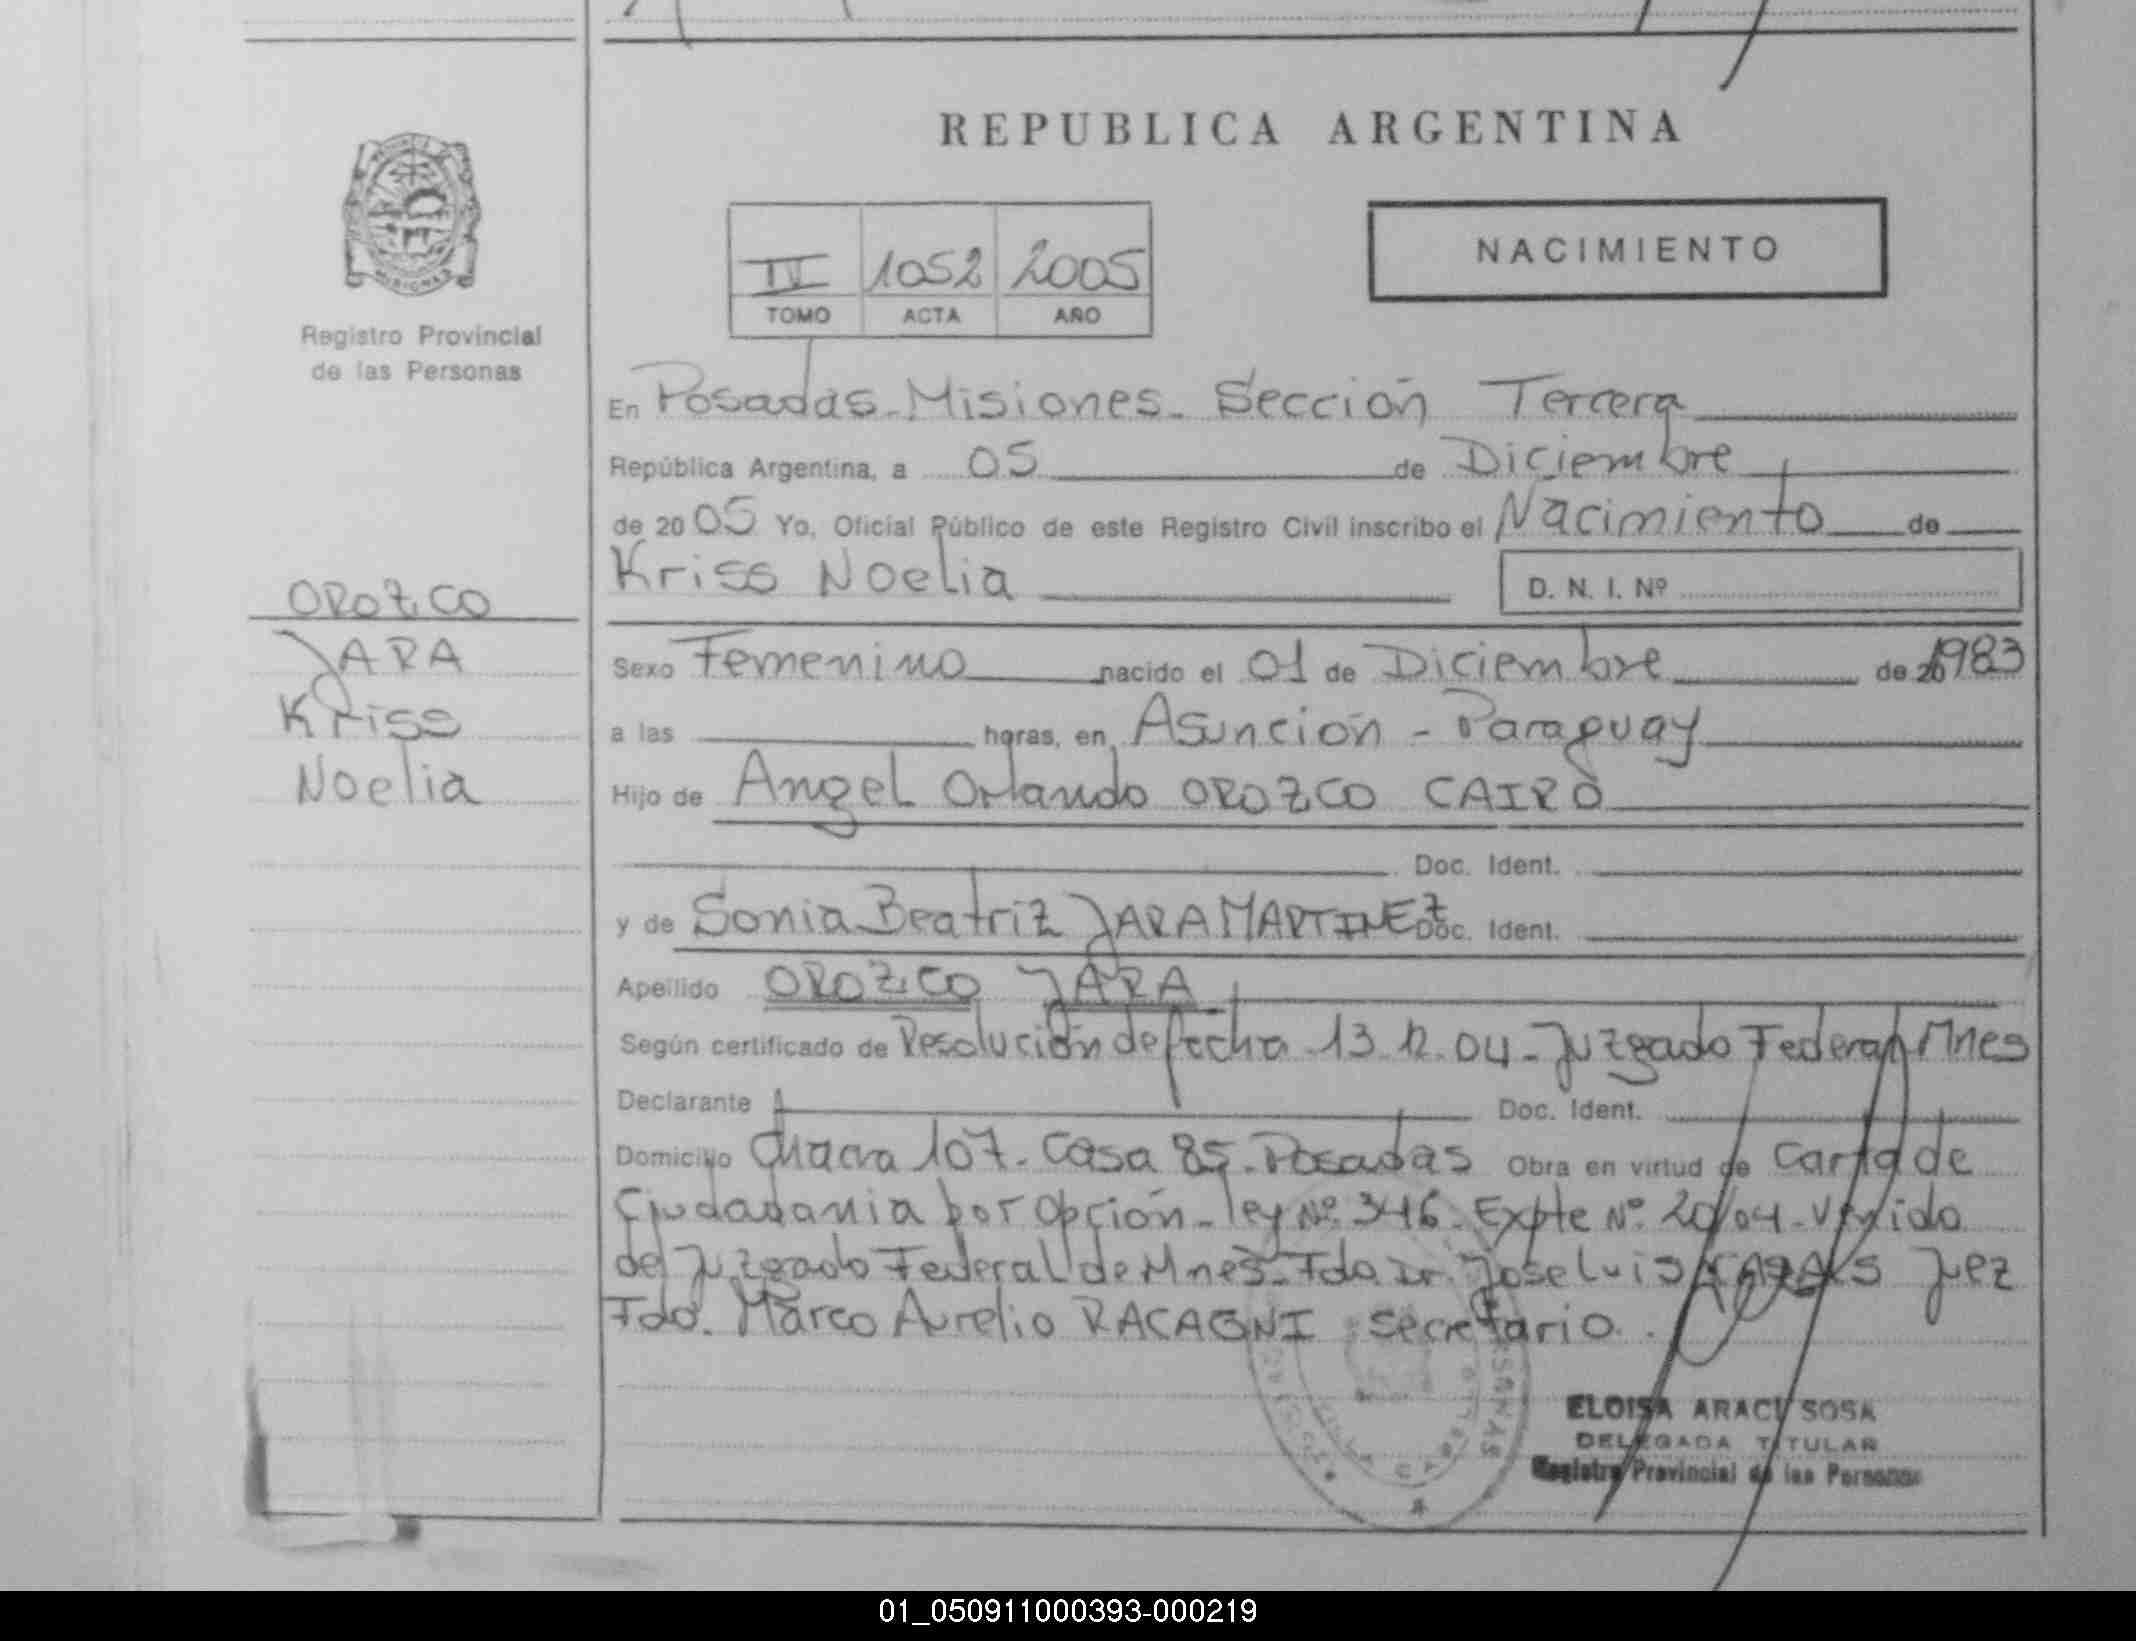 REPUBLICA ARGENTINA
NACIMIENTO
IV 1052 2005
TOMO ACTA AÑO
Registro Provincial
de las Personas
En Posadas - Misiones - Sección Tercera
República Argentina, a 05 de Diciembre
de 2005 Yo, Oficial Público de este Registro Civil inscribo el Nacimiento de
Kriss Noelia D. N. I. Nº
OROZCO
JARA
Kriss
Noelia
Sexo Femenino nacido el 01 de Diciembre de 1983
a las horas, en Asunción - Paraguay
Hijo de Angel Orlando OROZCO CAIRO
Doc. Ident.
y de Sonia Beatriz JARA MARTINEZ Doc. Ident.
Apellido OROZCO JARA
Según certificado de Resolución de fecha 13.12.04 - Juzgado Federal Mnes
Declarante Doc. Ident.
Domicilio Chacra 107 - Casa 85 - Posadas Obra en virtud de Carta de
Ciudadania por Opción - ley Nº 346 - Expte Nº 20/04 - Venido
del Juzgado Federal de Mnes - Fdo. Dr. Jose Luis CASALS Juez
Fdo. Marco Aurelio RACAGNI secretario.
ELOISA ARACI SOSA
DELEGADA TITULAR
Registro Provincial de las Personas
01_050911000393-000219